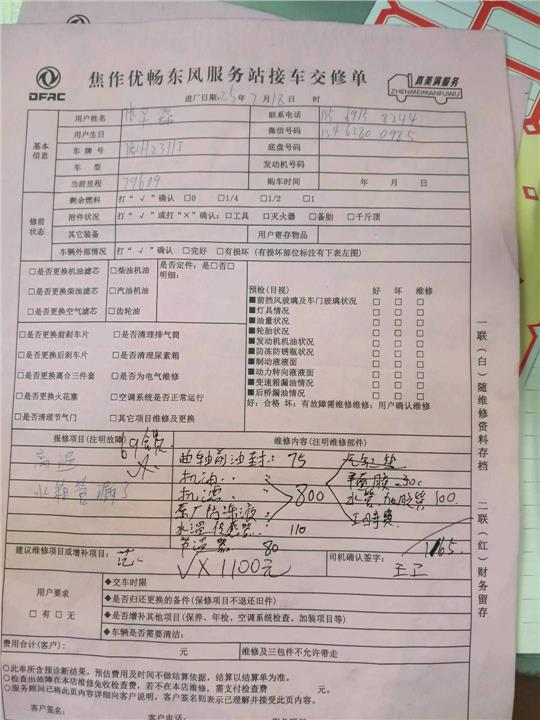 DFAC
焦作优畅东风服务站接车交修单
真美满服务
ZHENMEIMANFUWU
进厂日期: 25年 7月18日 时
基本信息
用户姓名 联系电话 8244
用户生日 微信号码 0985
车牌号 H2311J 底盘号码
车型 发动机号码
当前里程 79609 购车时间 年 月 日
修前状态
剩余燃料 打“√”确认 □0 □1/4 □1/2 □1
附件状况 打“√”或打“×”确认: □工具 □灭火器 □备胎 □千斤顶
其它装备 用户寄存物品
车辆外部情况 打“√”确认 □完好 □有损坏 (有损坏部位标注有下表左图)
□是否更换机油滤芯 □柴油机油 是否定件: 是□否□
明细:
□是否更换柴油滤芯 □汽油机油
□是否更换空气滤芯 □齿轮油
预检(目视) 好 坏 维修
■前挡风玻璃及车门玻璃状况 □ □ □
■灯具情况 □ □ □
■油量状况 □ □ □
■轮胎状况 □ □ □
■发动机机油状况 □ □ □
■防冻防锈瓶状况 □ □ □
■制动液液面 □ □ □
■动力转向液液面 □ □ □
■变速箱漏油情况 □ □ □
■后桥漏油情况 □ □ □
好: 合格 坏: 有故障需维修维修: 用户确认维修
□是否更换前刹车片 □是否清理排气筒
□是否更换后刹车片 □是否清理尿素箱
□是否更换离合三件套 □是否为电气维修
□是否更换火花塞 □空调系统是否正常运行
□是否清理节气门 □其它项目维修及更换
报修项目(注明故障) 维修内容(注明维修部件)
高温
水箱管漏
曲轴前油封: 75
机油
机滤
原厂防冻液
800
平面胶 30
水管加胶管 100
工时费
水温传感器 110
节温器 80
1165
建议维修项目或增补项目: 司机确认签字:
√× 1100元
用户要求
□有 □无
◆交车时限
◆是否归还更换的备件(保修项目不退还旧件)
◆是否增补其他项目(保养、年检、空调系统检查、加装项目等)
◆车辆是否需要清洁:
费用合计(客户): 元 维修及三包件不允许带走
○此单所含预诊断结果, 预估费用及时间不做结算依据, 结算以结算单为准。
○检查出故障在本店维修免收检查费, 若不在本店维修, 需支付检查费 元。
○服务顾问已将此页内容详细向客户说明, 客户签名则表示已理解并接受此页内容。
客户签名: 客户电话:
一联(白)随维修资料存档
二联(红)财务留存